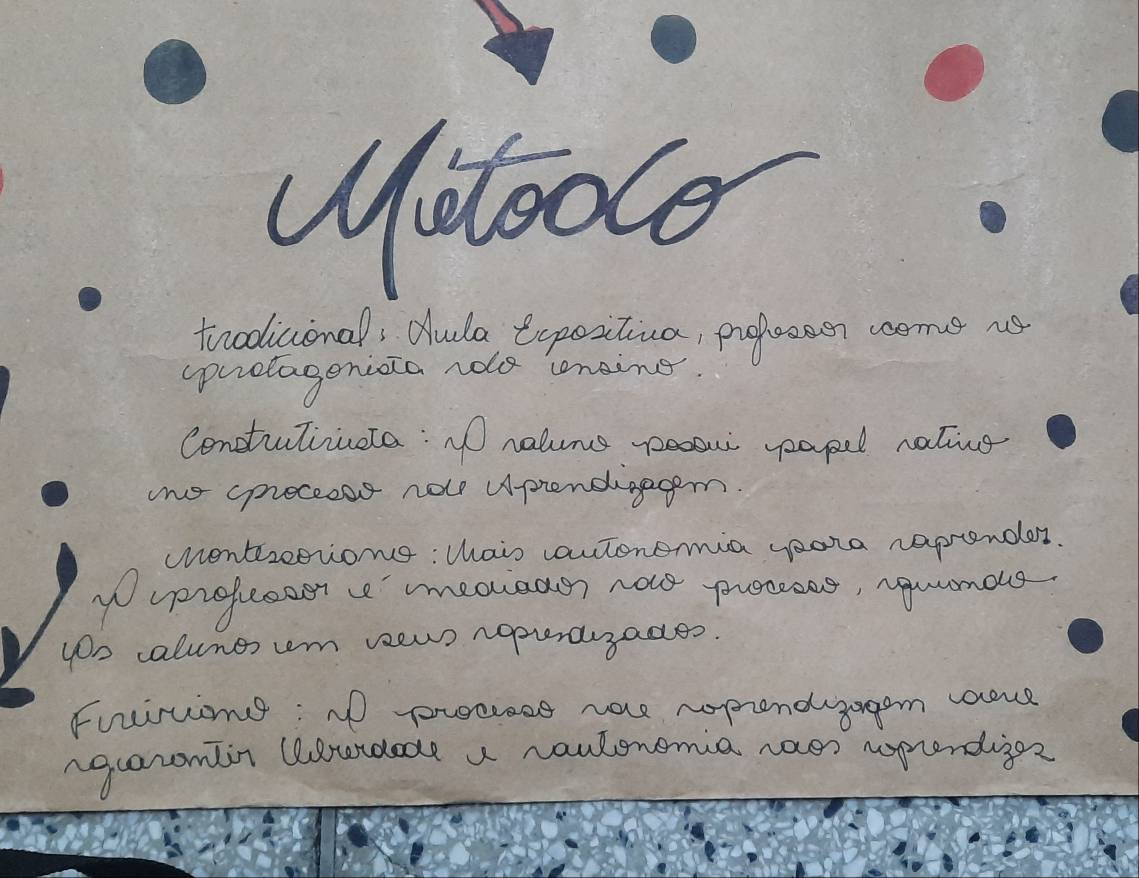 Método
tradicional: Aula Expositiva, professor como o
protagonista do ensino.
Construtivista: O aluno possui papel ativo
no processo de Aprendizagem.
Montessoriano: Mais autonomia para aprender.
O professor é mediador do processo, guiando
Os alunos em seus aprendizados.
Freiriano: O processo de aprendizagem deve
garantir liberdade e autonomia aos aprendizes